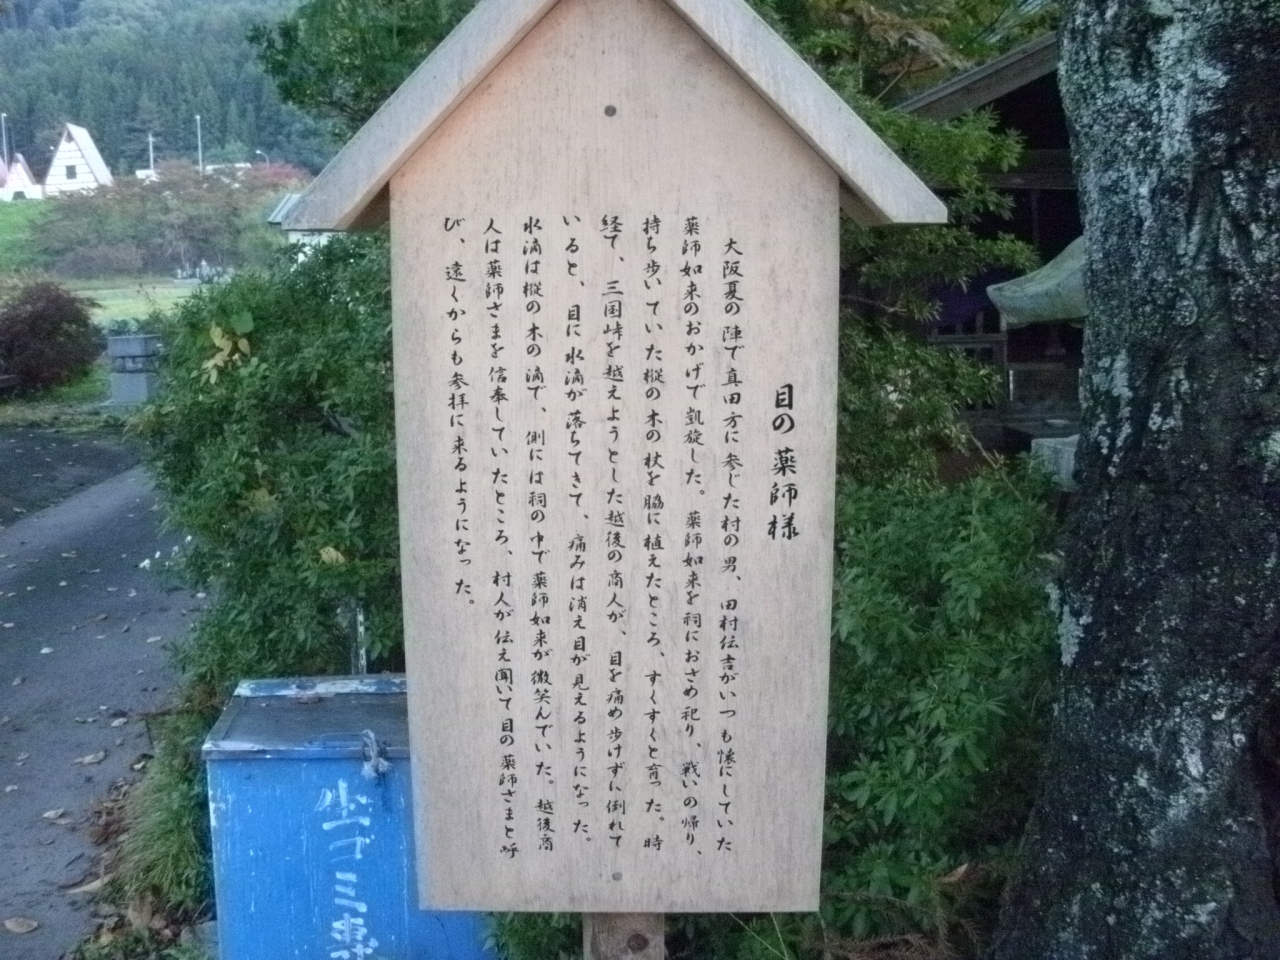 目の薬師様
大阪夏の陣で真田方に参じた村の男、田村伝吉がいつも懐にしていた
薬師如来のおかげで凱旋した。薬師如来を祠におさめ祀り、戦いの帰り、
持ち歩いていた樅の木の杖を脇に植えたところ、すくすくと育った。時
経て、三国峠を越えようとした越後の商人が、目を痛め歩けずに倒れて
いると、目に水滴が落ちてきて、痛みは消え目が見えるようになった。
水滴は樅の木の滴で、側には祠の中で薬師如来が微笑んでいた。越後商
人は薬師さまを信奉していたところ、村人が伝え聞いて目の薬師さまと呼
び、遠くからも参拝に来るようになった。
生ゴミ